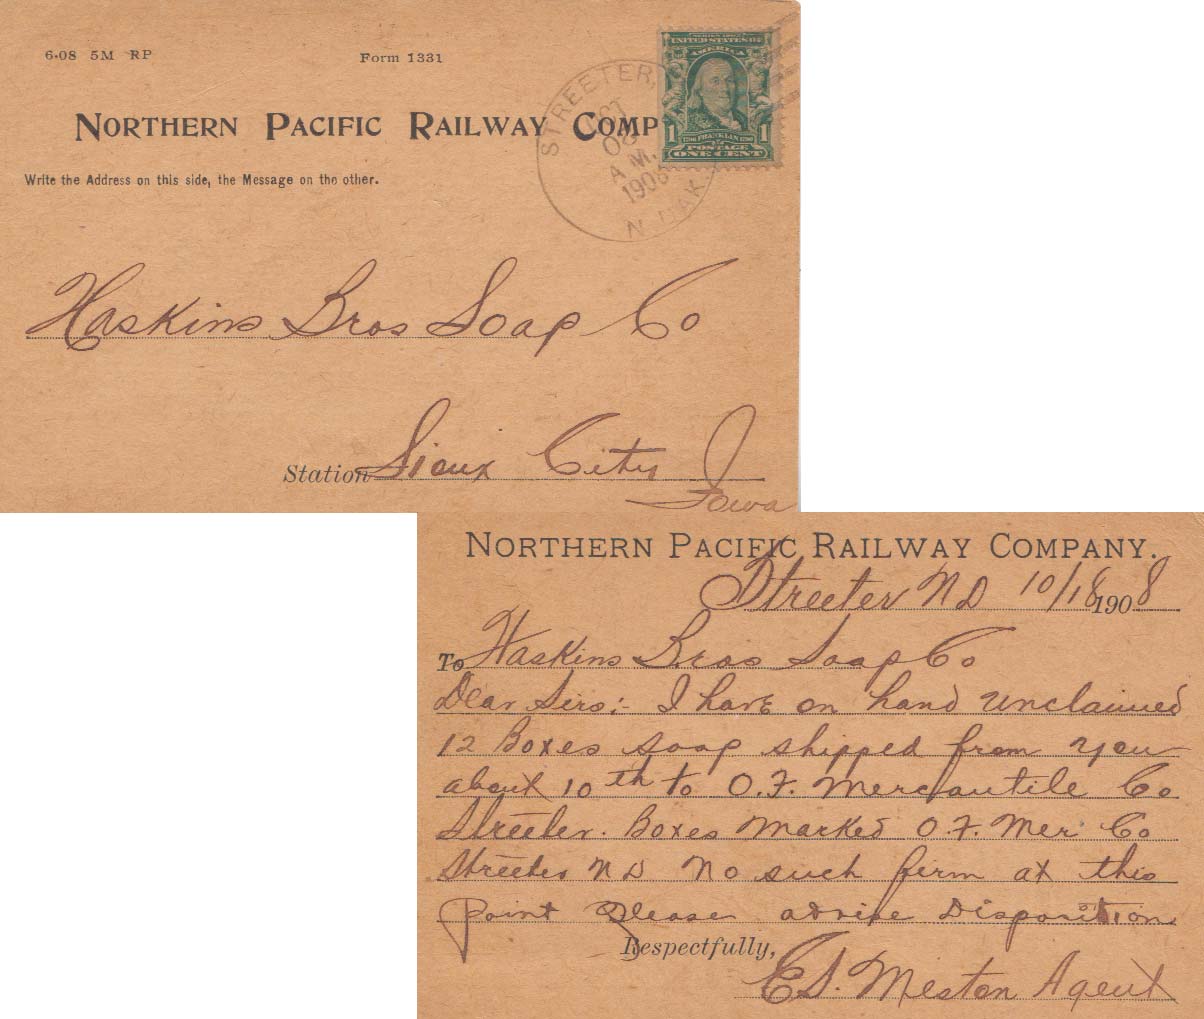 6-08 5M RP
Form 1331
NORTHERN PACIFIC RAILWAY COMP
Write the Address on this side, the Message on the other.
STREETER,
OCT
A.M.
1908
N. DAK.
SERIES 1902
UNITED STATES OF
AMERICA
1 FRANKLIN 1
POSTAGE
ONE CENT
Haskins Bros Soap Co
Station Sioux City
Iowa
NORTHERN PACIFIC RAILWAY COMPANY.
Streeter ND 10/18 1908
To Haskins Bros Soap Co
Dear Sirs:- I have on hand unclaimed
12 Boxes soap shipped from you
about 10th to O.F. Mercantile Co
Streeter. Boxes marked O.F. Mer Co
Streeter ND No such firm at this
point Please advise Disposition
Respectfully,
E.S. Meston Agent